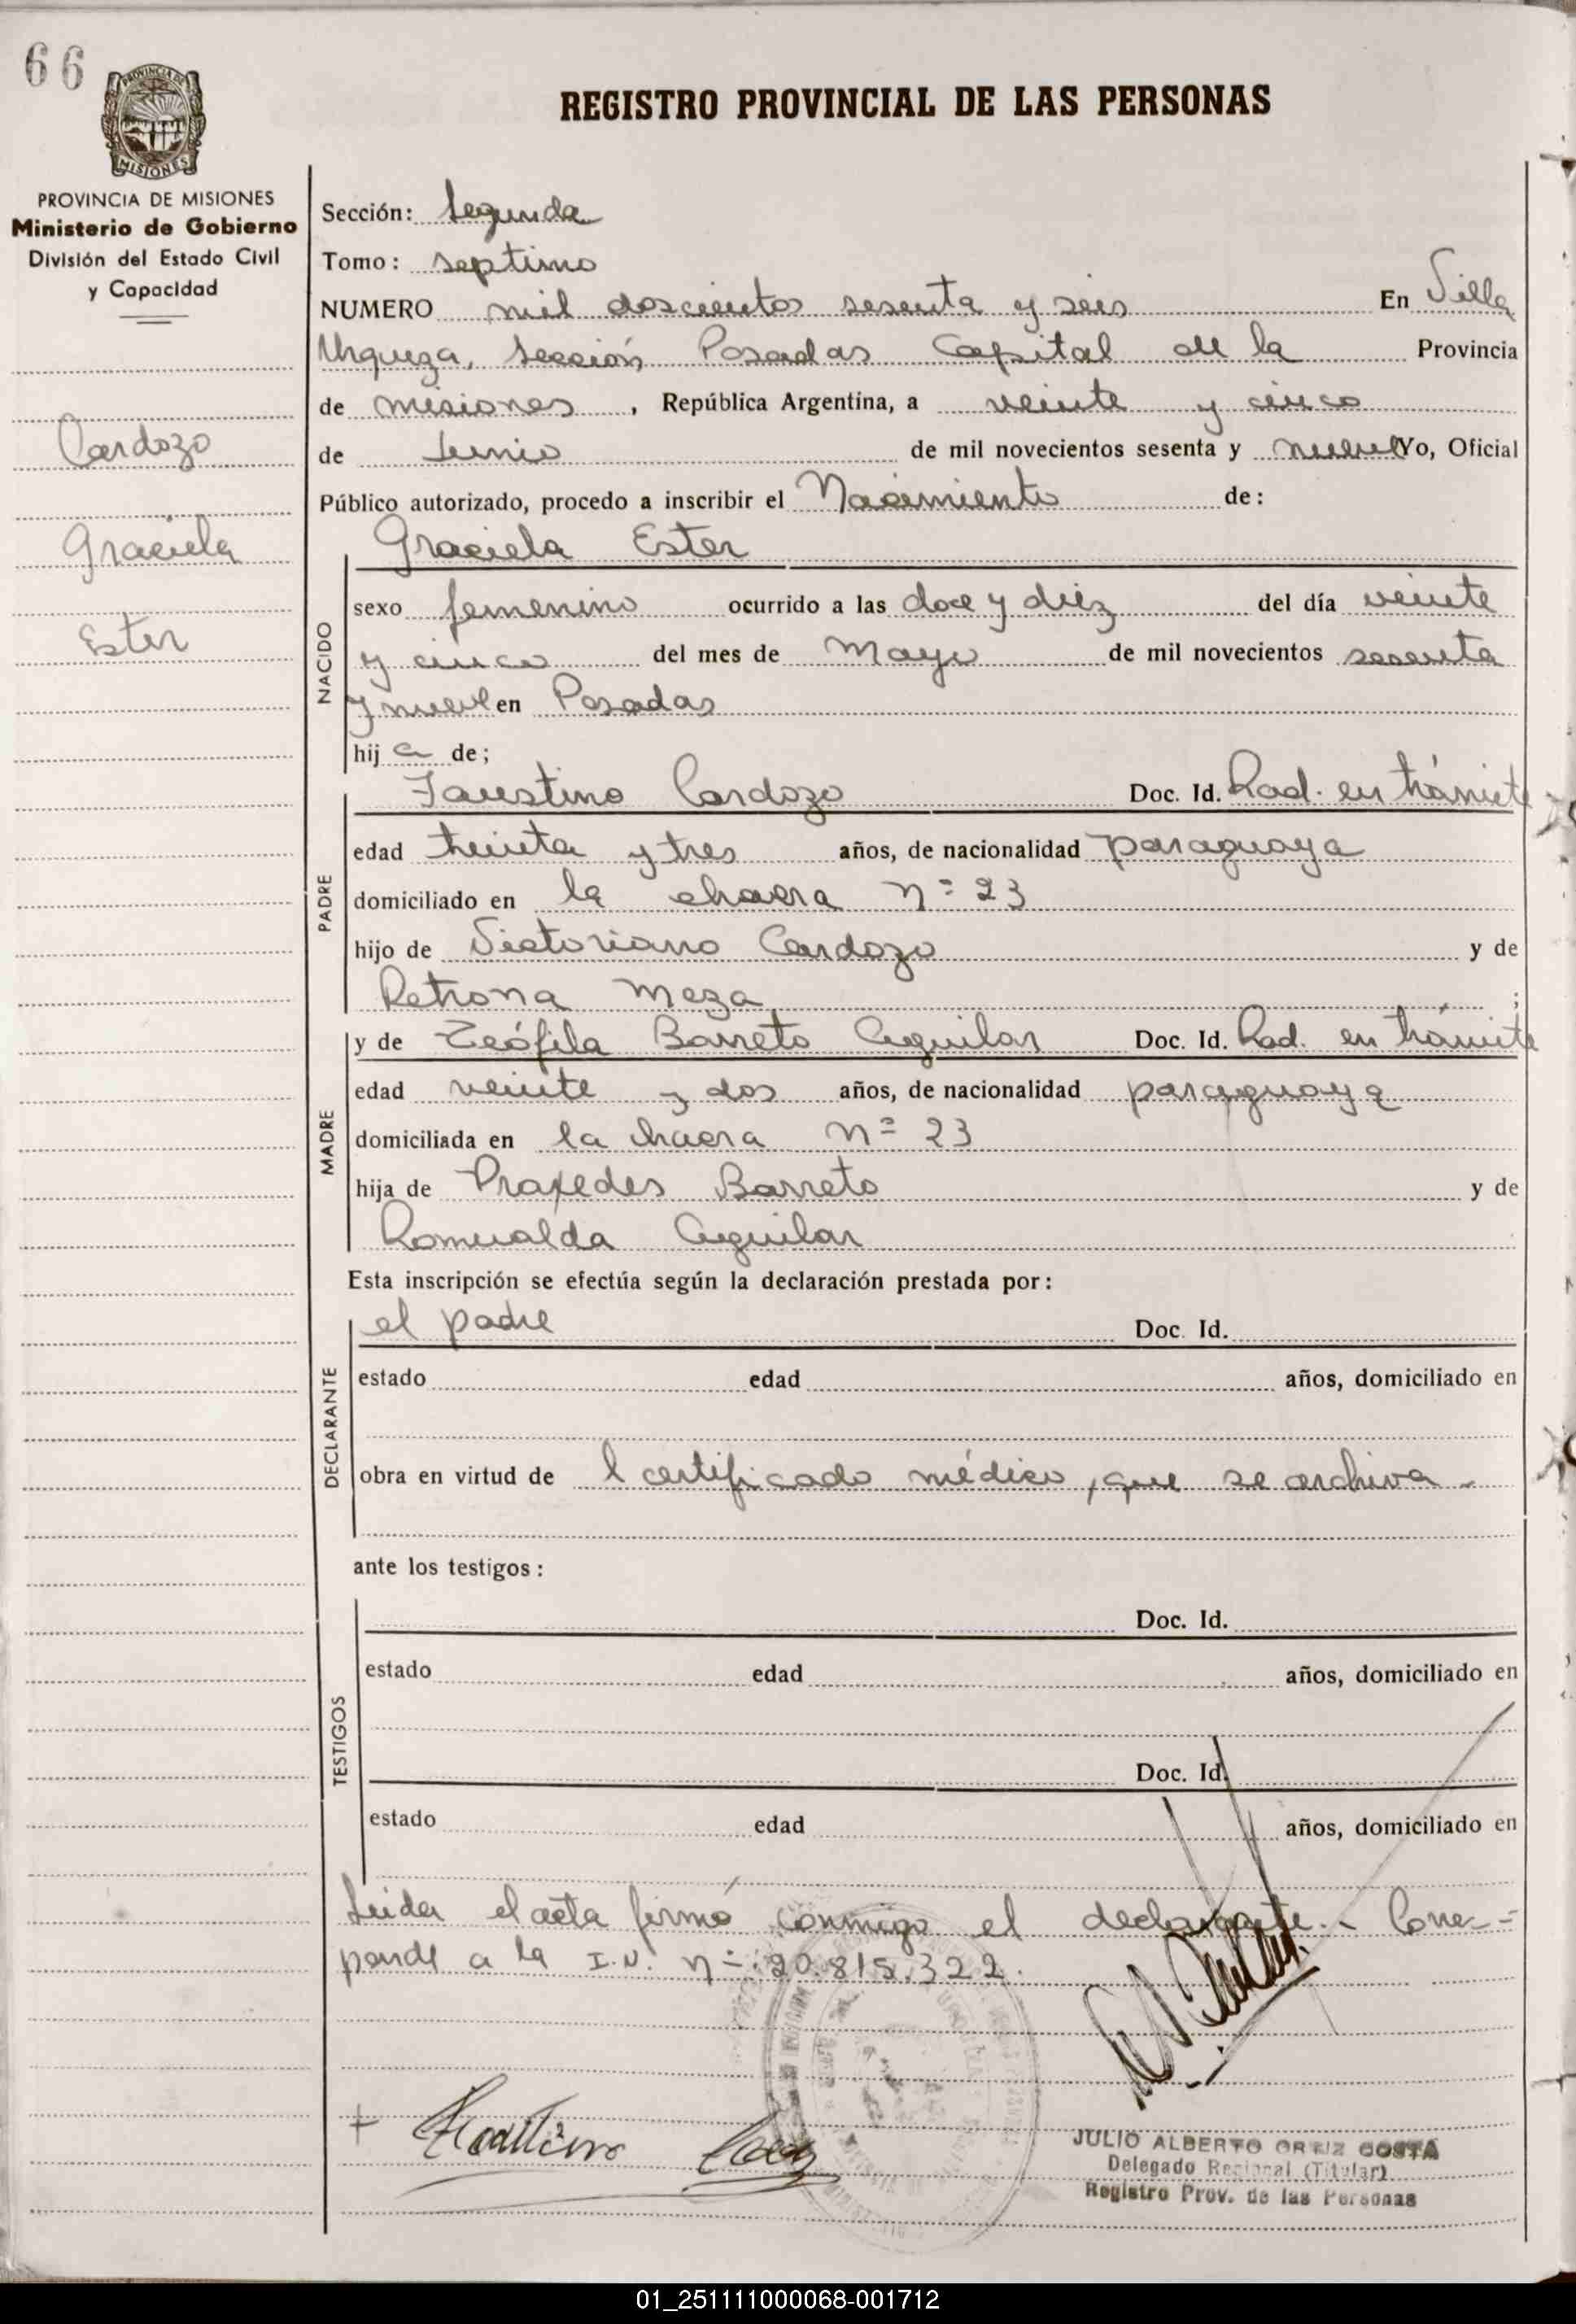 66
PROVINCIA DE
MISIONES
PROVINCIA DE MISIONES
Ministerio de Gobierno
División del Estado Civil
y Capacidad
Cardozo
Graciela
Ester
REGISTRO PROVINCIAL DE LAS PERSONAS
Sección: Segunda
Tomo: septimo
NUMERO mil doscientos sesenta y seis En Villa
Urquiza, Sección Posadas Capital de la Provincia
de misiones, República Argentina, a veinte y cinco
de Junio de mil novecientos sesenta y nueve Yo, Oficial
Público autorizado, procedo a inscribir el Nacimiento de:
Graciela Ester
NACIDO
sexo femenino ocurrido a las doce y diez del día veinte
y cinco del mes de Mayo de mil novecientos sesenta
y nueve en Posadas
hij a de;
PADRE
Faustino Cardozo Doc. Id. Rad. en trámite
edad treinta y tres años, de nacionalidad paraguaya
domiciliado en la chacra nº 23
hijo de Victoriano Cardozo y de
Petrona Meza ;
MADRE
y de Teófila Barreto Aguilar Doc. Id. Rad. en trámite
edad veinte y dos años, de nacionalidad paraguaya
domiciliada en la chacra Nº 23
hija de Praxedes Barreto y de
Romualda Aguilar
Esta inscripción se efectúa según la declaración prestada por:
DECLARANTE
el padre Doc. Id.
estado edad años, domiciliado en
obra en virtud de l certificado médico, que se archiva -
ante los testigos:
TESTIGOS
Doc. Id.
estado edad años, domiciliado en
Doc. Id.
estado edad años, domiciliado en
Leida el acta firmó conmigo el declarante. - Corres=
ponde a la I.N. nº 20.815.322.
JULIO ALBERTO ORTIZ COSTA
Delegado Regional (Titular)
Registro Prov. de las Personas
01_251111000068-001712